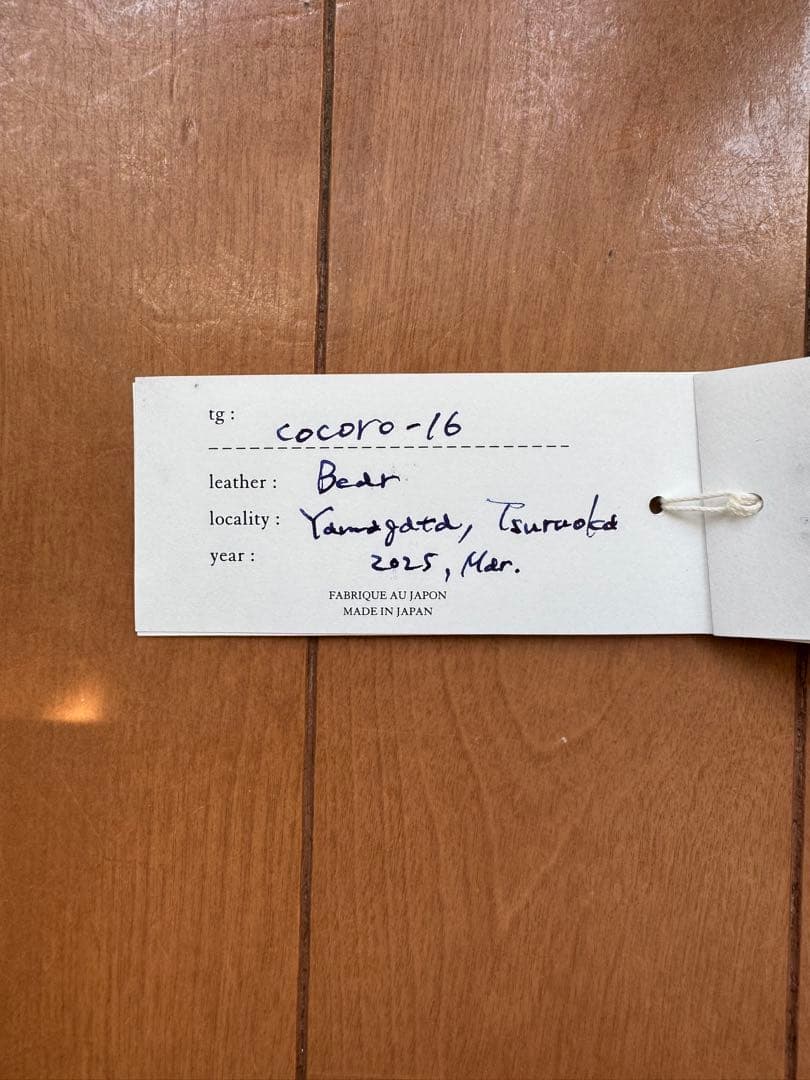 tg : cocoro-16
leather : Bear
locality : Yamagata, Tsuruoka
year : 2025, Mar.
FABRIQUE AU JAPON
MADE IN JAPAN